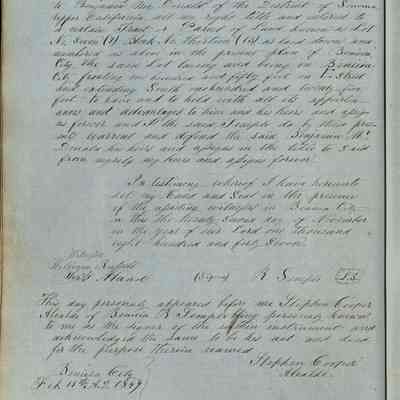 to Benjamin McDonald of the District of Sonoma
Upper California all my right title and interest to
a certain Tract or Parcel of Land known as Lot
No. Seven (7) Block No. Thirteen (13) as laid down and
numbered as above in the present plan of Benicia
City, the same Lot laying and being in Benicia
City fronting one hundred and fifty feet on Street
and extending South one hundred and twenty five
feet to have and to hold with all its apperten-
ances and advantages to him and his heirs and assigns
forever and I the said Semple do by these pre-
sents warrant and defend the said Benjamin Mc
Donald his heirs and assigns in the title to said
from myself my heirs and assigns forever
In testimony whereof I have hereunto
set my Hand and Seal in the presence
of the witnesses in Benicia City
on this the twenty Second day of November
in the year of our Lord one thousand
eight hundred and forty Seven
Witness
(Signed) R Semple L.S.
This day personally appeared before me Stephen Cooper
Alcalde of Benicia R Semple being personally known
to me as the signer of the within instrument and
acknowledged the same to be his act and deed
for the purpose therein named
Stephen Cooper
Alcalde
Benicia City
Feb 14th A.D. 1849